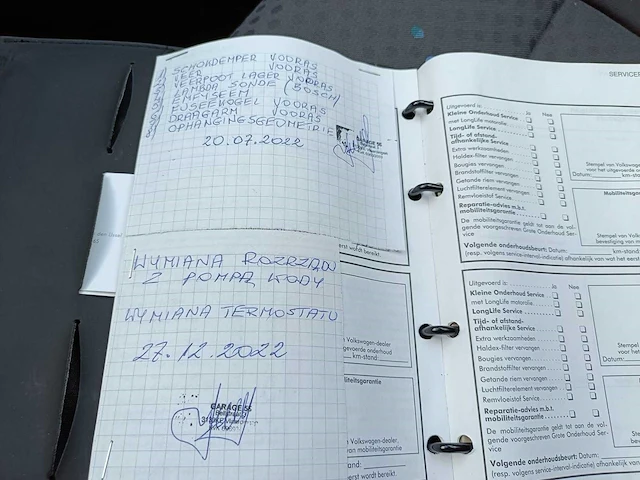 SCHOKDEMPER VOORAS
VEER VOORAS
VEERPOOT LAGER VOORAS
LAMBDA SONDE (BOSCH)
FUSEEKOGEL VOORAS
DRAAGARM VOORAS
OPHANGINGSGEOMETRIE
20.07.2022
GARAGE 5K
WYMIANA ROZRZĄDU
Z POMPĄ WODY
WYMIANA TERMOSTATU
27.12.2022
GARAGE 5K
eerst wordt bereikt.
Volkswagen-dealer
voorgeschreven onderhoud
km-stand:
Mobiliteitsgarantie
Volkswagen-dealer,
mobiliteitsgarantie
km-stand:
eerst wordt bereikt.
SERVICE
Uitgevoerd is: Ja Nee
Kleine Onderhoud Service
met LongLife motorolie
LongLife Service
Tijd- of afstand-
afhankelijke Service
Extra werkzaamheden
Haldex-filter vervangen
Bougies vervangen
Brandstoffilter vervangen
Getande riem vervangen
Luchtfilterelement vervangen
Remvloeistof Service
Reparatie-advies m.b.t.
mobiliteitsgarantie
De mobiliteitsgarantie geldt tot aan de vol-
gende voorgeschreven Grote Onderhoud Ser-
vice
Stempel van Volks
voor het uitgevoerde
Datum: km-stand
Mobiliteits
Stempel van Volks
bevestiging van
km-stand:
Volgende onderhoudsbeurt: Datum:
(resp. volgens service-interval-indicatie) afhankelijk van wat het eerst
Uitgevoerd is: Ja Nee
Kleine Onderhoud Service
met LongLife motorolie
LongLife Service
Tijd- of afstand-
afhankelijke Service
Extra werkzaamheden
Haldex-filter vervangen
Bougies vervangen
Brandstoffilter vervangen
Getande riem vervangen
Luchtfilterelement vervangen
Remvloeistof Service
Reparatie-advies m.b.t.
mobiliteitsgarantie
De mobiliteitsgarantie geldt tot aan de vol-
gende voorgeschreven Grote Onderhoud Ser-
vice
Stempel
voor het
Datum:
Volgende onderhoudsbeurt: Datum:
(resp. volgens service-interval-indicatie) afhankelijk